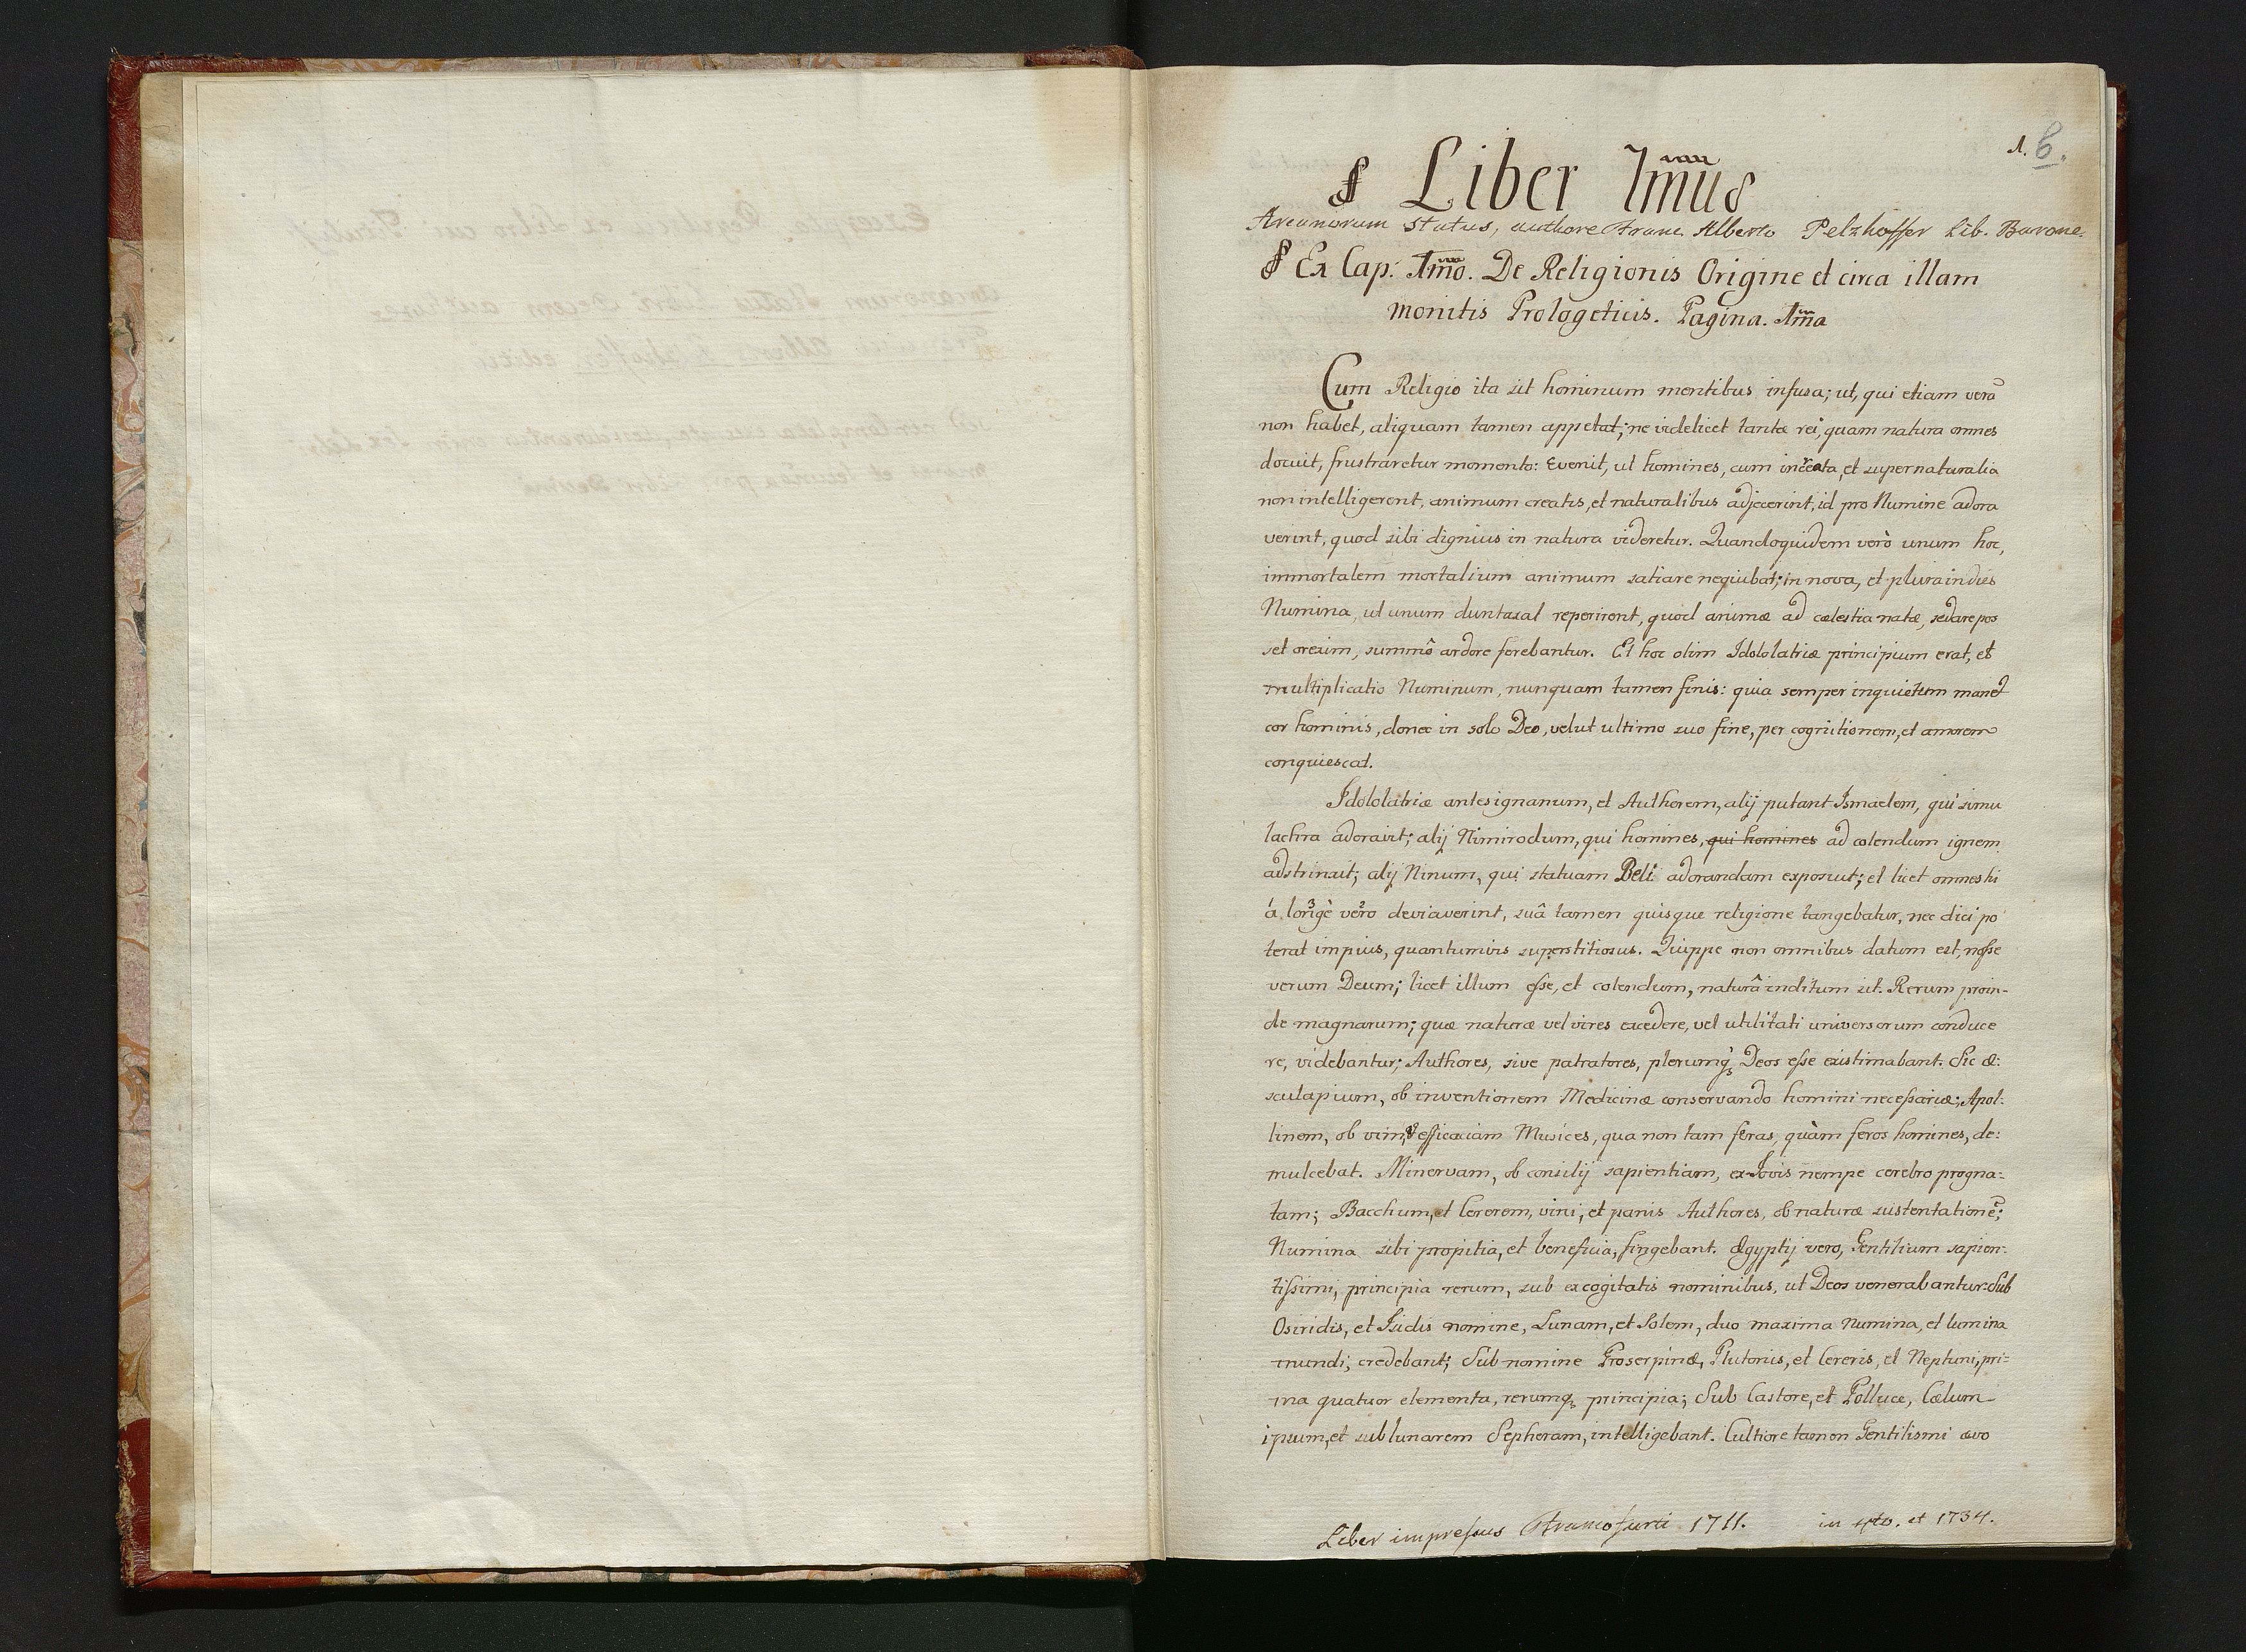 1. 6.
§ Liber Imus
Arcanorum status, authore Franc. Alberto Pelzhoffer Lib. Barone.
§ Ex Cap: 1mo. De Religionis Origine et circa illam
monitis Prologeticis. Pagina. 1ma
Cum Religio ita sit hominum mentibus infusa; ut, qui etiam verā
non habet, aliquam tamen appetat; ne videlicet tantæ rei, quam natura omnes
docuit, frustraretur momento: Evenit, ut homines, cum increata, et supernaturalia
non intelligerent, animum creatis, et naturalibus adjecerint, id pro Numine adora
verint, quod sibi dignius in natura videretur. Quandoquidem verò unum hoc,
immortalem mortalium animum satiare nequibat; in nova, et plura indies
Numina, ut unum duntaxat reperirent, quod animæ ad cælestia natæ, sedare pos
set orexim, summô ardore ferebantur. Et hoc olim Idololatriæ principium erat, et
multiplicatio Numinum, nunquam tamen finis: quia semper inquietum manet
cor hominis, donec in solo Deo, velut ultimo suo fine, per cognitionem, et amorem
conquiescat.
Idololatriæ antesignanum, et Authorem, alij putant Ismaelem, qui simu
lachra adoravit; alij Nimirodum, qui homines, qui homines ad colendum ignem
adstrinxit; alij Ninum, qui statuam Beli adorandam exposuit; et licet omnes hi
á longè vero deviaverint, suâ tamen quisque religione tangebatur, nec dici po
terat impius, quantumvis superstitiosus. Quippe non omnibus datum est, nosse
verum Deum; licet illum esse, et colendum, naturâ inditum sit. Rerum proin-
de magnarum; quæ naturæ vel vires excedere, vel utilitati universorum conduce
re, videbantur; Authores, sive patratores, plerumq; Deos esse existimabant. Sic Æ:
sculapium, ob inventionem Medicinæ conservando homini necessariæ; Apol:
linem, ob vim, & efficaciam Musices, qua non tam feras, quàm feros homines, de:
mulcebat. Minervam, ob consilij sapientiam, ex Jovis nempe cerebro progna:
tam; Bacchum, et Cererem, vini, et panis Authores, ob naturæ sustentationē;
Numina sibi propitia, et beneficia, fingebant. Ægyptij vero, Gentilium sapien:
tissimi, principia rerum, sub excogitatis nominibus, ut Deos venerabantur: Sub
Osiridis, et Isidis nomine, Lunam, et Solem, duo maxima Numina, et lumina
mundi, credebant; Sub nomine Proserpinæ, Plutonis, et Cereris, et Neptuni, pri=
ma quatuor elementa, rerumq; principia; Sub Castore, et Polluce, Cælum
ipsum, et sublunarem Sepheram, intelligebant. Cultiore tamen Gentilismi ævo
Liber impressus Francofurti 1711. in 4to. et 1734.